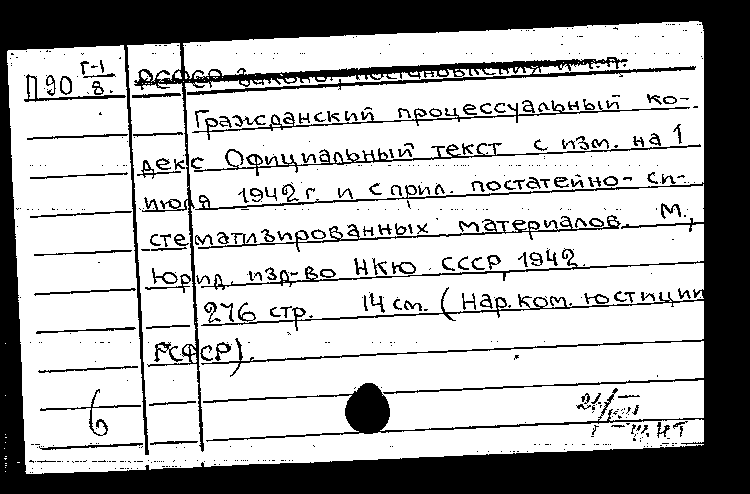 П90 Г-1/8. РСФСР Законы, постановления и т.п.
Гражданский процессуальный ко-
декс Официальный текст с изм. на 1
июля 1942 г. и с прил. постатейно-си-
стематизированных материалов. М.,
Юрид. изд-во НКЮ СССР, 1942.
276 стр. 14 см. (Нар. ком. юстиции
РСФСР).
6